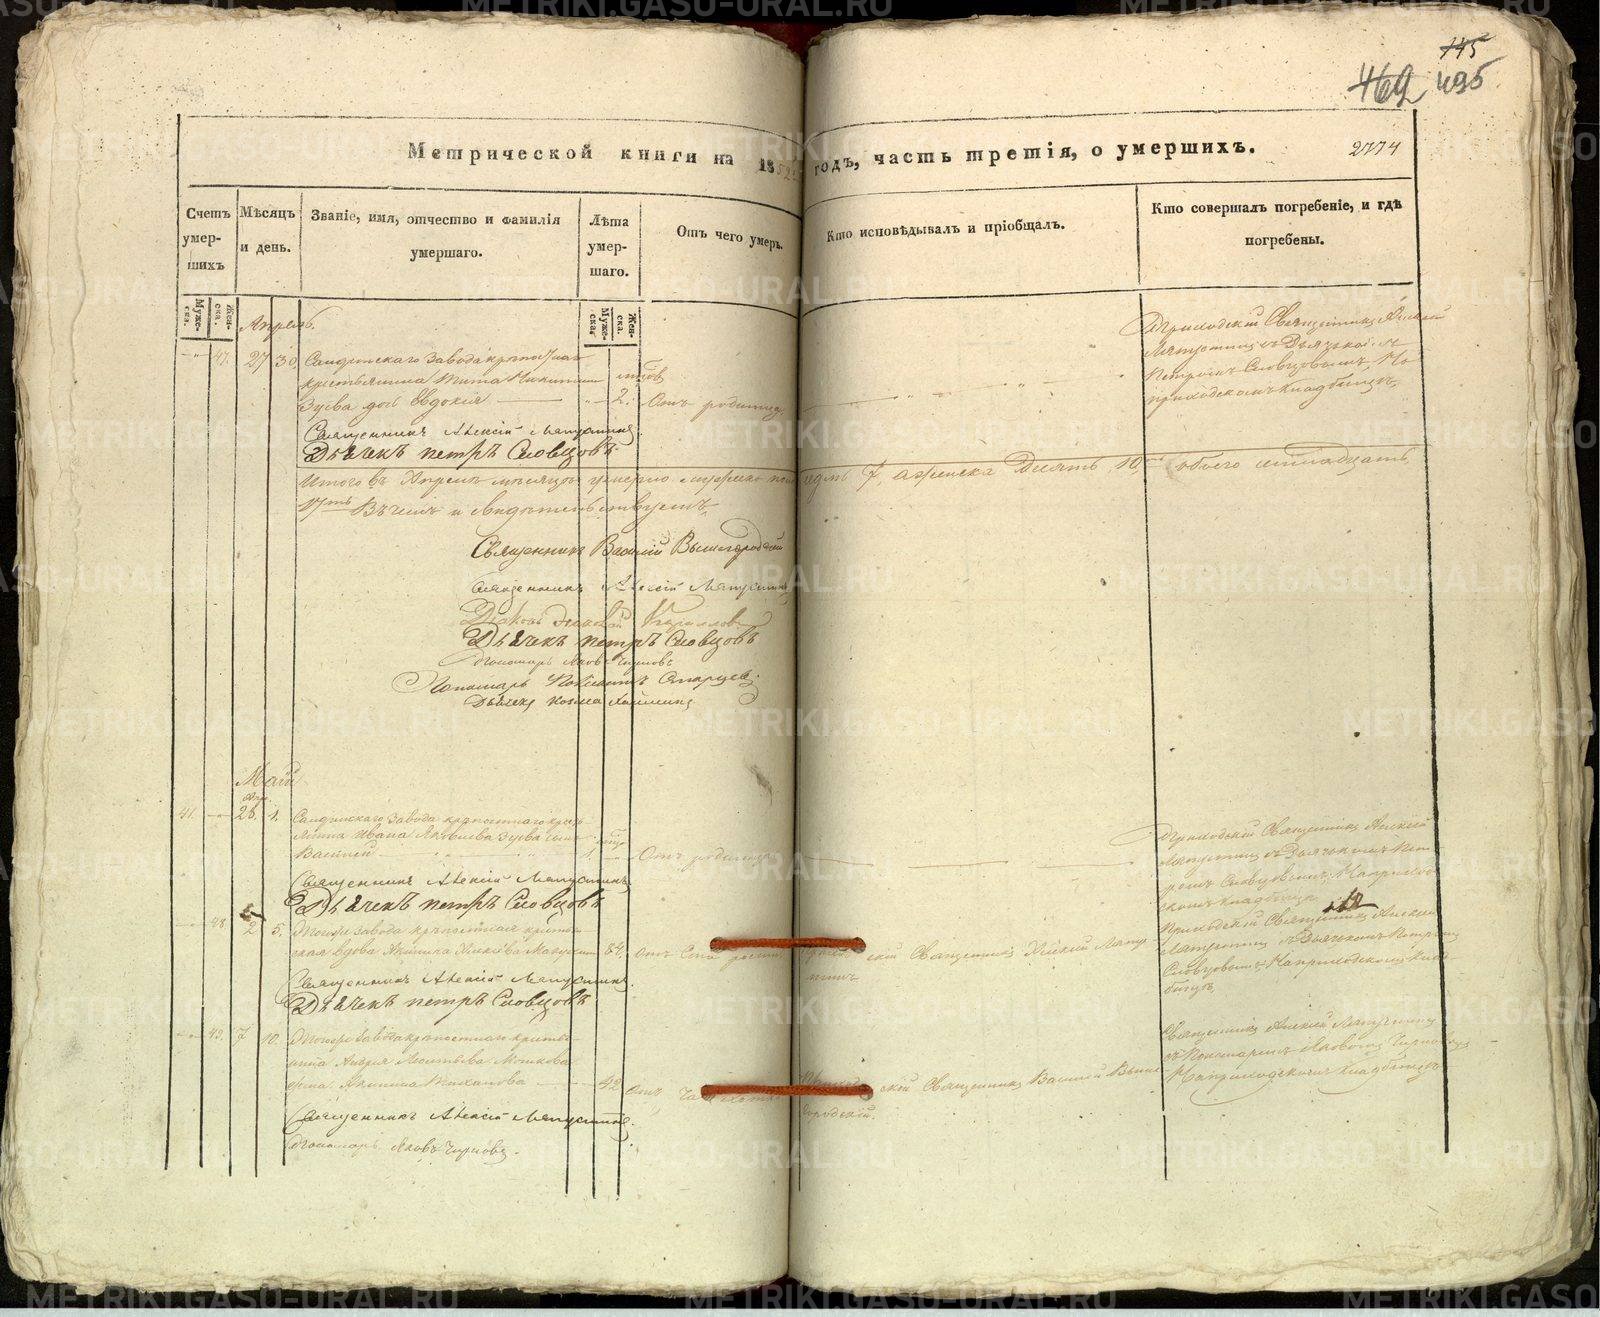 145
469 495
Метрической книги на 1852 годъ, часть третія, о умершихъ.
2774
Счетъ умершихъ
Мѣсяцъ и день.
Званіе, имя, отчество и фамилія умершаго.
Лѣта умершаго.
Отъ чего умеръ.
Кто исповѣдывалъ и пріобщалъ.
Кто совершалъ погребеніе, и гдѣ погребены.
Мужеска.
Женска.
Мужеска.
Женска.
Апрель.
47. 27 30. Салдинскаго завода крѣпостнаго
крестьянина Тита Никитина
Зуева дочь Евдокія 2. Отъ родимца
Приходскій Священникъ Алексій
Ляпустинъ съ Дьячкомъ
Петромъ Словцовымъ, На
приходскомъ кладбищѣ.
Священникъ Алексій Ляпустинъ
Дьячекъ петръ Словцовъ.
Итого въ Апрелѣ мѣсяцѣ умерло мужеска пола
7, а женска Десять 10 обоего
17ть Въ чемъ и свидѣтельствуемъ
Священникъ Василій Вышегородскій
Священникъ Алексій Ляпустинъ
Дьячекъ петръ Словцовъ
Пономарь Яковъ
Пономарь Старцевъ.
Дьячекъ Козма
Май
41. 26. 1. Салдинскаго завода крѣпостнаго кресть-
янина Ивана Яковлева Зуева сынъ
Василій 1. Отъ родимца
Приходскій Священникъ Алексій
Ляпустинъ съ Дьячкомъ Пет-
ромъ Словцовымъ, На приход-
скомъ кладбищѣ
Священникъ Алексій Ляпустинъ
Дьячекъ петръ Словцовъ
48. 2 5. Тогоже завода крѣпостная кресть-
янская вдова 84. Отъ Старости
скій Священникъ Алексій Ляпу-
стинъ
Приходскій Священникъ Алексій
Ляпустинъ съ Дьячкомъ Петромъ
Словцовымъ На приходскомъ клад-
бищѣ
Священникъ Алексій Ляпустинъ.
Дьячекъ петръ Словцовъ
49. 7 10. Тогоже завода крѣпостнаго кресть-
янина Андрея Леонтьева
жена 42 Отъ Чахотки
скій Священникъ Василій Выше-
городскій.
Священникъ Алексій Ляпустинъ
съ Пономаремъ Яковомъ
На приходскомъ кладбищѣ
Священникъ Алексій Ляпустинъ.
Пономарь Яковъ